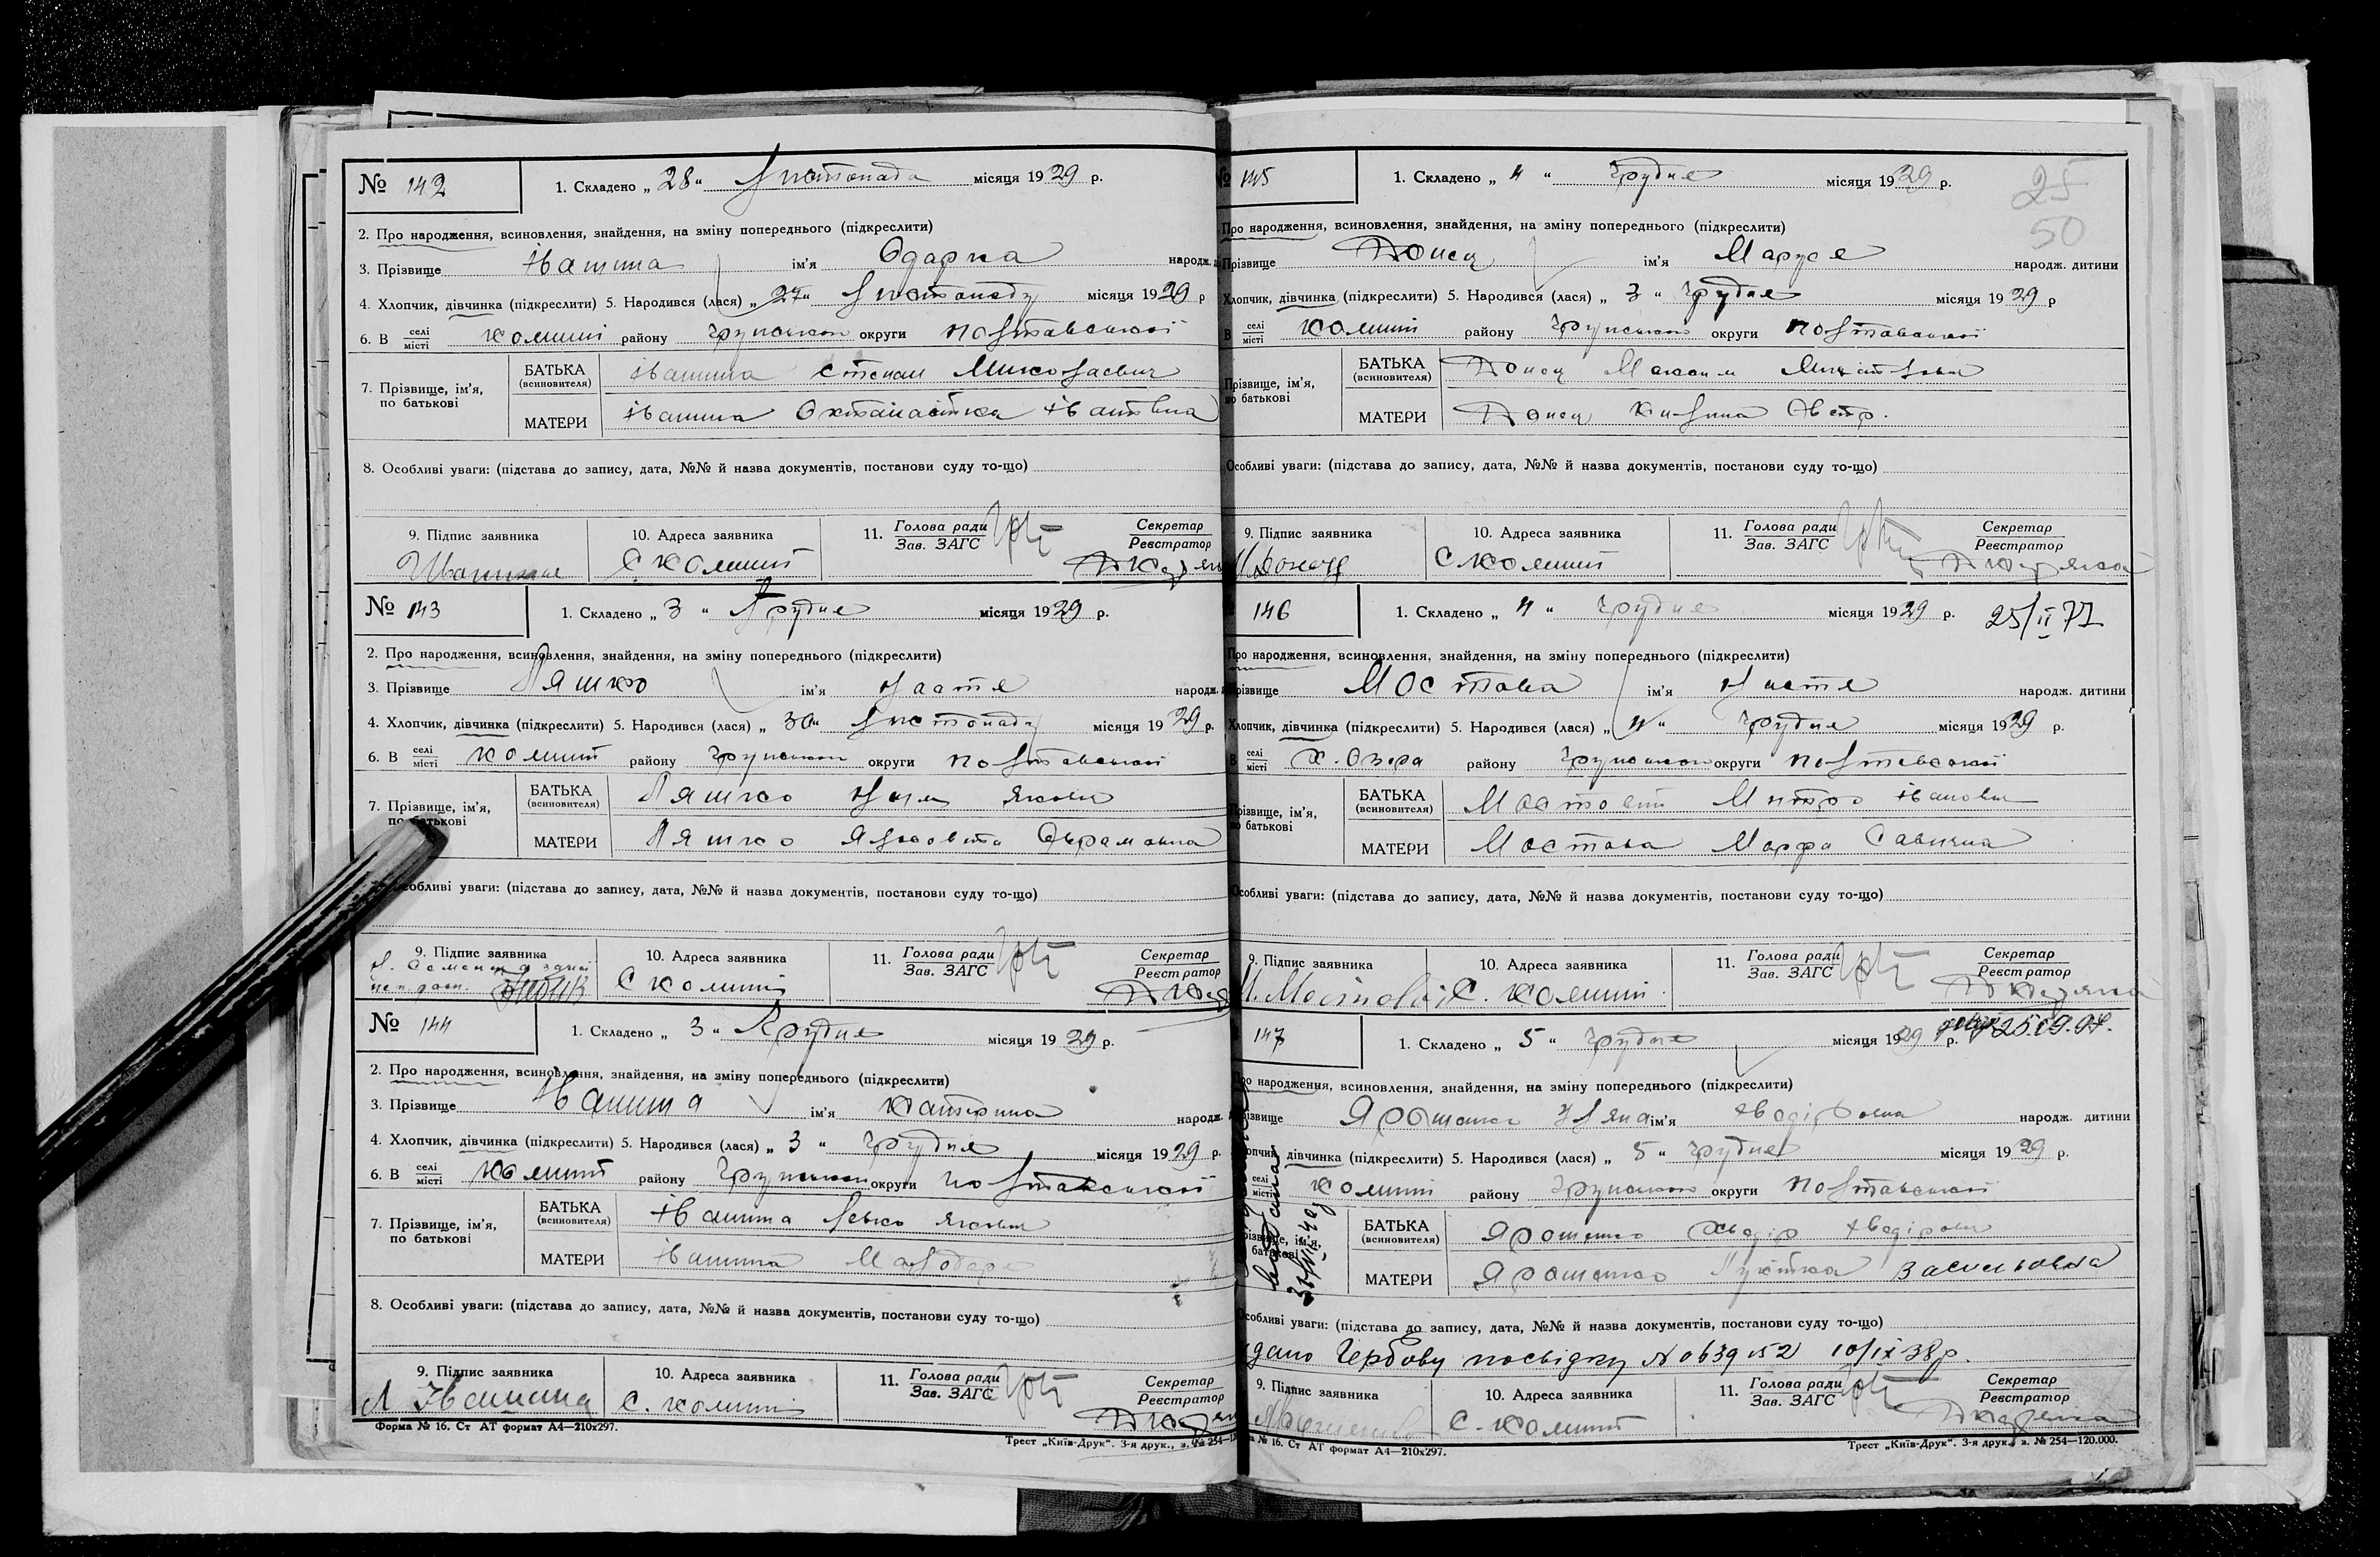 № 142
1. Складено „ 28 “ Листопада місяця 1929 р.
2. Про народження, всиновлення, знайдення, на зміну попереднього (підкреслити)
3. Прізвище Івашина ім'я Одарка народж.
4. Хлопчик, дівчинка (підкреслити) 5. Народився (лася) „ 27 “ Листопаду місяця 1929 р
6. В селі місті Комиші району Грунського округи Полтавської
7. Прізвище, ім'я, по батькові
БАТЬКА (всиновителя) Івашина Степан Миколаєвич
МАТЕРИ Івашина
8. Особливі уваги: (підстава до запису, дата, №№ й назва документів, постанови суду то-що)
9. Підпис заявника Ивашина
10. Адреса заявника С Комиші
11. Голова ради Зав. ЗАГС
Секретар Реєстратор
№ 143
1. Складено „ 3 “ Грудня місяця 1929 р.
2. Про народження, всиновлення, знайдення, на зміну попереднього (підкреслити)
3. Прізвище Ляшко ім'я Настя народж.
4. Хлопчик, дівчинка (підкреслити) 5. Народився (лася) „ 30 “ Листопаду місяця 1929 р.
6. В селі місті Комиші району Грунського округи Полтавської
7. Прізвище, ім'я, по батькові
БАТЬКА (всиновителя) Ляшко Якович
МАТЕРИ Ляшко Оврамовна
Особливі уваги: (підстава до запису, дата, №№ й назва документів, постанови суду то-що)
9. Підпис заявника
10. Адреса заявника С Комиші
11. Голова ради Зав. ЗАГС
Секретар Реєстратор
№ 144
1. Складено „ 3 “ Грудня місяця 1929 р.
2. Про народження, всиновлення, знайдення, на зміну попереднього (підкреслити)
3. Прізвище Івашина ім'я Катерина народж.
4. Хлопчик, дівчинка (підкреслити) 5. Народився (лася) „ 3 “ Грудня місяця 1929 р.
6. В селі місті Комиші району Грунського округи Полтавської
7. Прізвище, ім'я, по батькові
БАТЬКА (всиновителя) Івашина Левко Якович
МАТЕРИ Івашина
8. Особливі уваги: (підстава до запису, дата, №№ й назва документів, постанови суду то-що)
9. Підпис заявника Л Івашина
10. Адреса заявника С. Комиші
11. Голова ради Зав. ЗАГС
Секретар Реєстратор
Форма № 16. Ст АТ формат А4—210х297.
Трест „Київ-Друк“. 3-я друк., з. № 254—
№ 145
1. Складено „ 4 “ Грудня місяця 1929 р.
25
50
Про народження, всиновлення, знайдення, на зміну попереднього (підкреслити)
Прізвище Донец ім'я Маруся народж. дитини
Хлопчик, дівчинка (підкреслити) 5. Народився (лася) „ 3 “ Грудня місяця 1929 р
В селі місті Комиші району Грунського округи Полтавської
Прізвище, ім'я, по батькові
БАТЬКА (всиновителя) Донец Максим
МАТЕРИ Донец
Особливі уваги: (підстава до запису, дата, №№ й назва документів, постанови суду то-що)
9. Підпис заявника М Донец
10. Адреса заявника С Комиші
11. Голова ради Зав. ЗАГС
Секретар Реєстратор
146
1. Складено „ 4 “ Грудня місяця 1929 р.
25/II 77
Про народження, всиновлення, знайдення, на зміну попереднього (підкреслити)
Прізвище Мостова ім'я Настя народж. дитини
Хлопчик, дівчинка (підкреслити) 5. Народився (лася) „ 4 “ Грудня місяця 1929 р.
В селі місті Х. Озера району Грунського округи Полтавської
Прізвище, ім'я, по батькові
БАТЬКА (всиновителя) Мостовий Митро Іванович
МАТЕРИ Мостова Марфа Савична
Особливі уваги: (підстава до запису, дата, №№ й назва документів, постанови суду то-що)
9. Підпис заявника М. Мостовой
10. Адреса заявника С. Комиші
11. Голова ради Зав. ЗАГС
Секретар Реєстратор
147
1. Складено „ 5 “ Грудня місяця 1929 р.
25.09.07.
Про народження, всиновлення, знайдення, на зміну попереднього (підкреслити)
Прізвище Ярошенко Уляна ім'я Хведірована народж. дитини
Хлопчик, дівчинка (підкреслити) 5. Народився (лася) „ 5 “ Грудня місяця 1929 р.
селі місті Комиші району Грунського округи Полтавської
Прізвище, ім'я, батькові
БАТЬКА (всиновителя) Ярошенко Хведір Хведірович
МАТЕРИ Ярошенко Василовна
Особливі уваги: (підстава до запису, дата, №№ й назва документів, постанови суду то-що)
дано Гербову посвідку № 063952 10/IX 38р.
9. Підпис заявника
10. Адреса заявника С. Комиші
11. Голова ради Зав. ЗАГС
Секретар Реєстратор
№ 16. Ст АТ формат А4—210х297.
Трест „Київ-Друк“. 3-я друк., з. № 254—120.000.